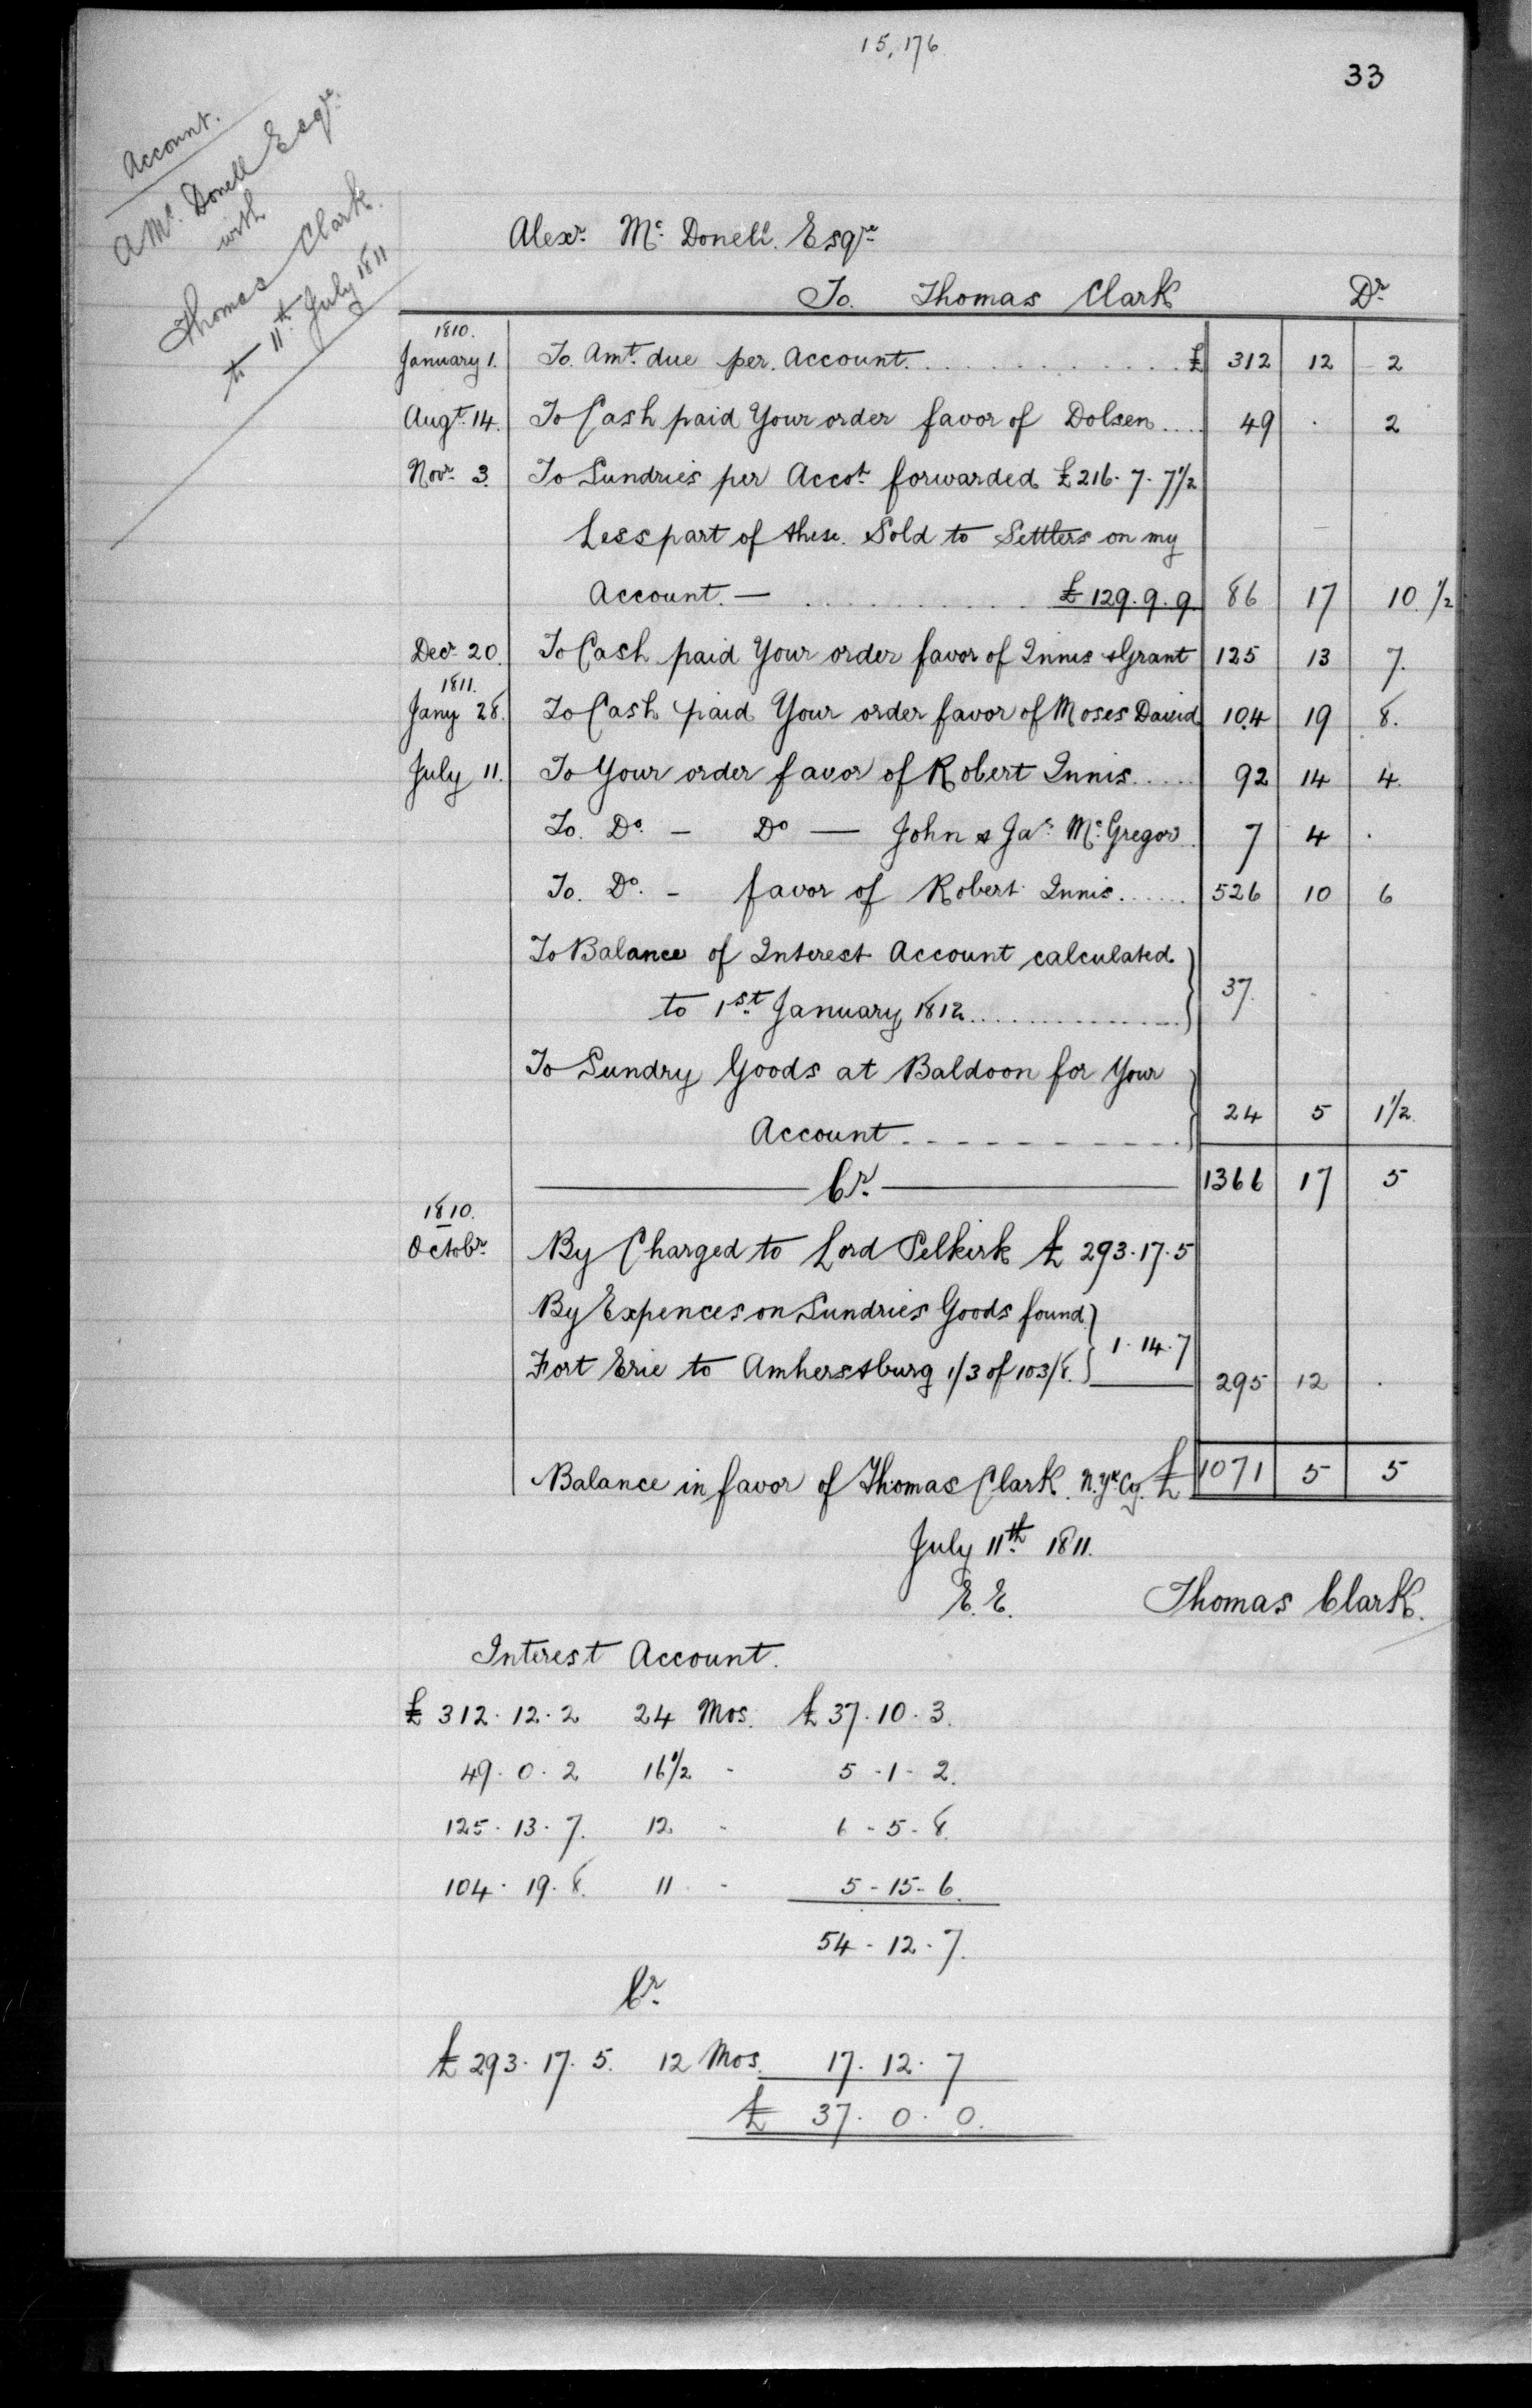 15,176
33
Account.
A Mc. Donell Esqre.
with
Thomas Clark.
to 11th. July 1811
Alexr. Mc. Donell. Esqre
To. Thomas Clark Dr
1810.
January 1. To Amt. due per. Account. . . . . . . . . . . . . £ 312 12 2
Augt. 14. To Cash paid Your order favor of Dolsen .... 49 . 2
Novr. 3. To Sundries per Accot. forwarded £216. 7. 7 1/2
Less part of these. Sold to Settlers on my
Account. — . . . . . . . . . . . £ 129. 9. 9 86 17 10. 1/2
Decr. 20. To Cash paid Your order favor of Innis & Grant 125 13 7.
1811.
Jany 28. To Cash paid Your order favor of Moses David 104 19 8.
July 11. To Your order favor of Robert Innis ..... 92 14 4.
To. Do. - Do — John & Jas. Mc. Gregor 7 4 .
To. Do. - favor of Robert Innis ...... 526 10 6
To Balance of Interest Account calculated
to 1st. January 1812 .............. } 37. . .
To Sundry Goods at Baldoon for Your
Account . - - - - - - - - - - } 24 5 1 1/2
Cr. 1366 17 5
1810.
Octobr. By Charged to Lord Selkirk £ 293. 17. 5
By Expences on Sundries Goods found
Fort Erie to Amherstburg 1/3 of 103/8. } 1. 14. 7 295 12 .
Balance in favor of Thomas Clark. N. Yk. Cy. £ 1071 5 5
July 11th. 1811.
E. E. Thomas Clark.
Interest Account.
£ 312. 12. 2 24 Mos. £ 37. 10. 3.
49. 0. 2 16 1/2 - 5 - 1 - 2.
125. 13. 7. 12. - 6 - 5 - 8.
104. 19. 8. 11 - 5 - 15 - 6.
54 - 12 - 7.
Cr.
£ 293. 17. 5. 12 Mos. 17. 12. 7
£ 37. 0. 0.